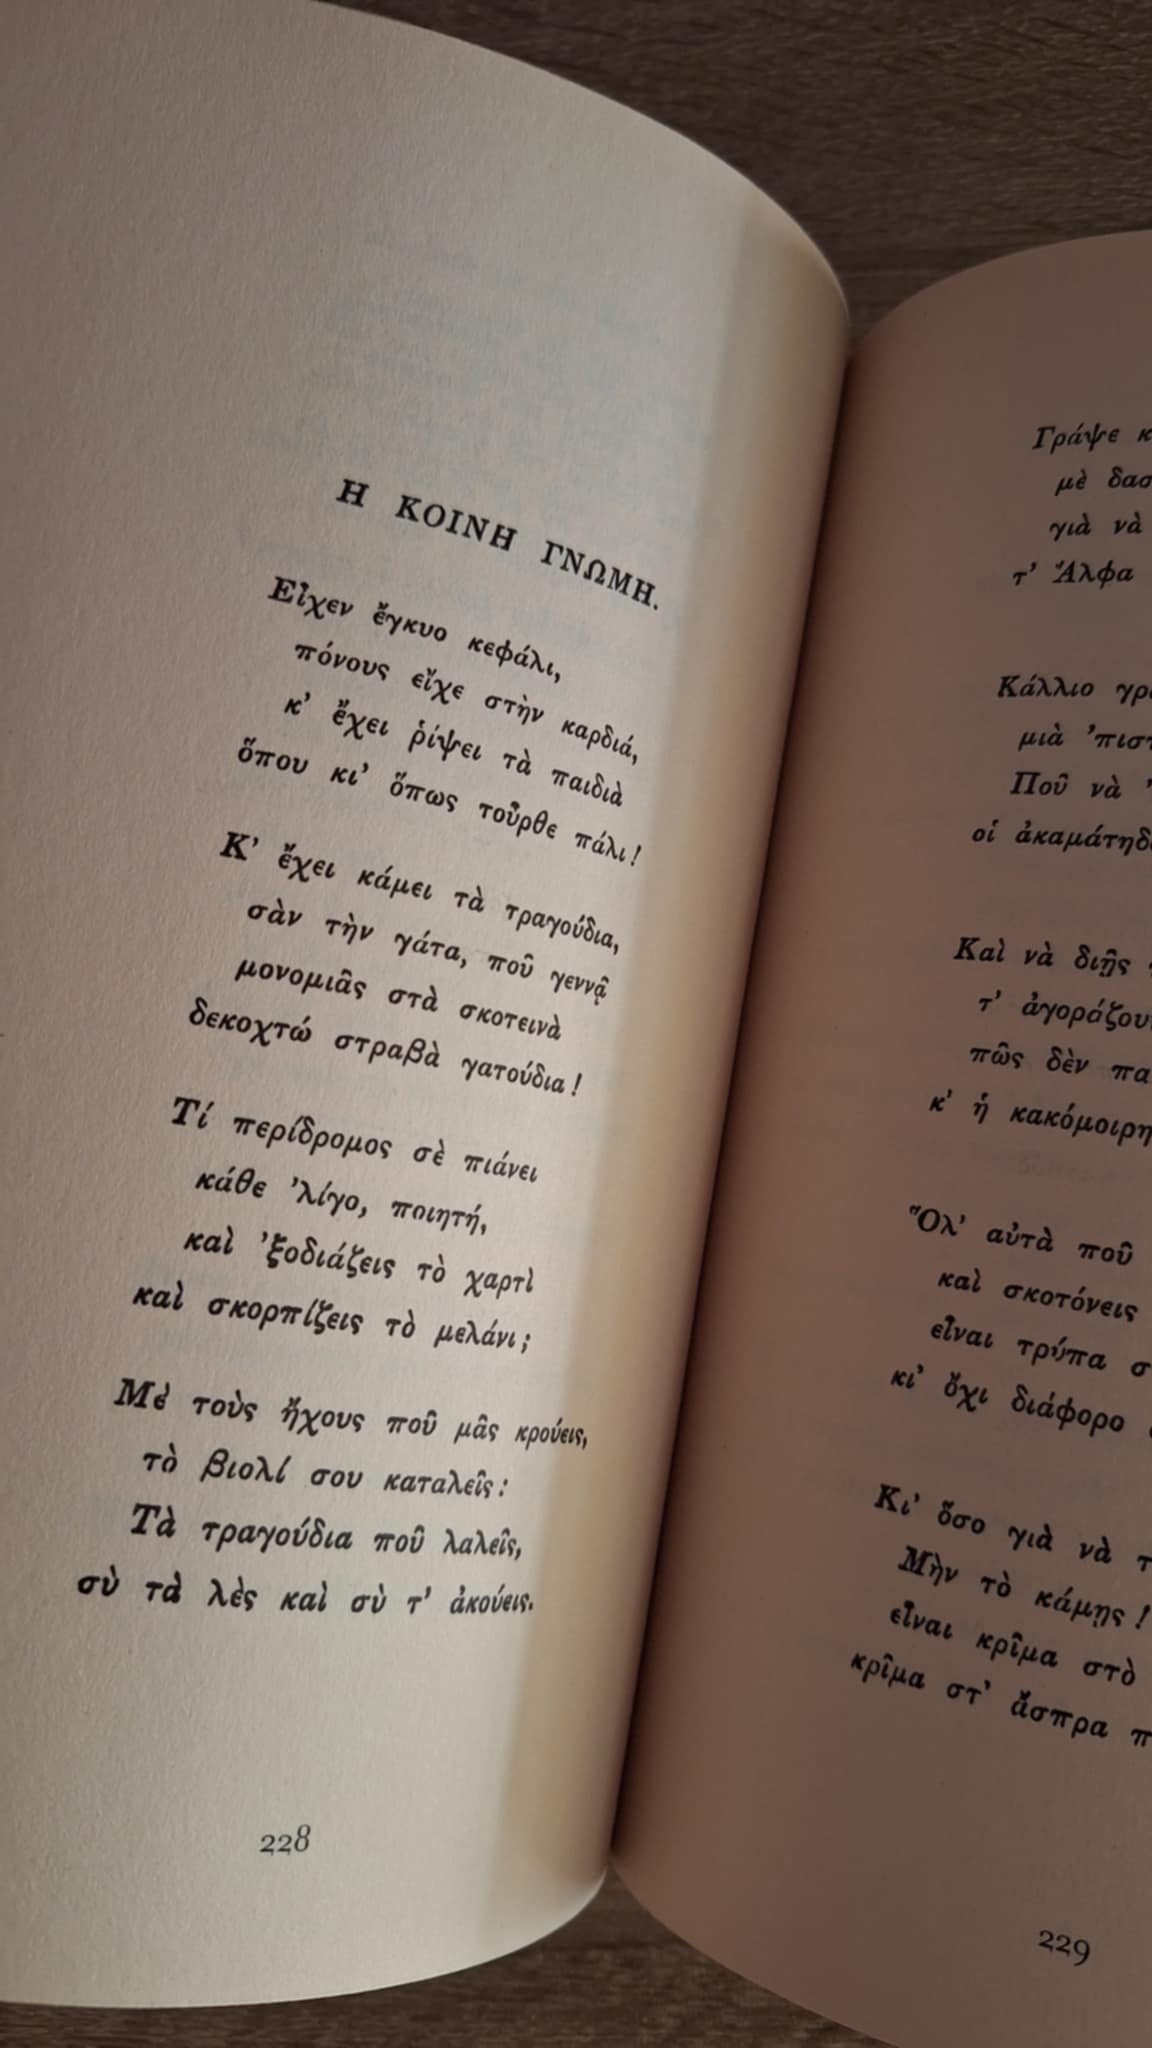 Η ΚΟΙΝΗ ΓΝΩΜΗ.
Εἶχεν ἔγκυο κεφάλι,
πόνους εἶχε στὴν καρδιά,
κ' ἔχει ῥίψει τὰ παιδιὰ
ὅπου κι' ὅπως τοὖρθε πάλι!
Κ' ἔχει κάμει τὰ τραγούδια,
σὰν τὴν γάτα, ποῦ γεννᾷ
μονομιᾶς στὰ σκοτεινὰ
δεκοχτώ στραβὰ γατούδια!
Τί περίδρομος σὲ πιάνει
κάθε 'λίγο, ποιητή,
καὶ 'ξοδιάζεις τὸ χαρτὶ
καὶ σκορπίζεις τὸ μελάνι;
Μὲ τοὺς ἤχους ποῦ μᾶς κρούεις,
τὸ βιολί σου καταλεῖς:
Τὰ τραγούδια ποῦ λαλεῖς,
σὺ τὰ λὲς καὶ σὺ τ' ἀκούεις.
228
Γράψε
μὲ
γιὰ νὰ
τ' Ἄλφα
Κάλλιο
μιὰ
Ποῦ νὰ
οἱ
Καὶ νὰ διῇς
τ'
πῶς δὲν
κ' ἡ
Ὅλ' αὐτὰ ποῦ
καὶ σκοτόνεις
εἶναι τρύπα
κι' ὄχι διάφορο
Κι' ὅσο γιὰ νὰ
Μὴν τὸ κάμῃς!
εἶναι κρῖμα στὸ
κρῖμα στ' ἄσπρα
229